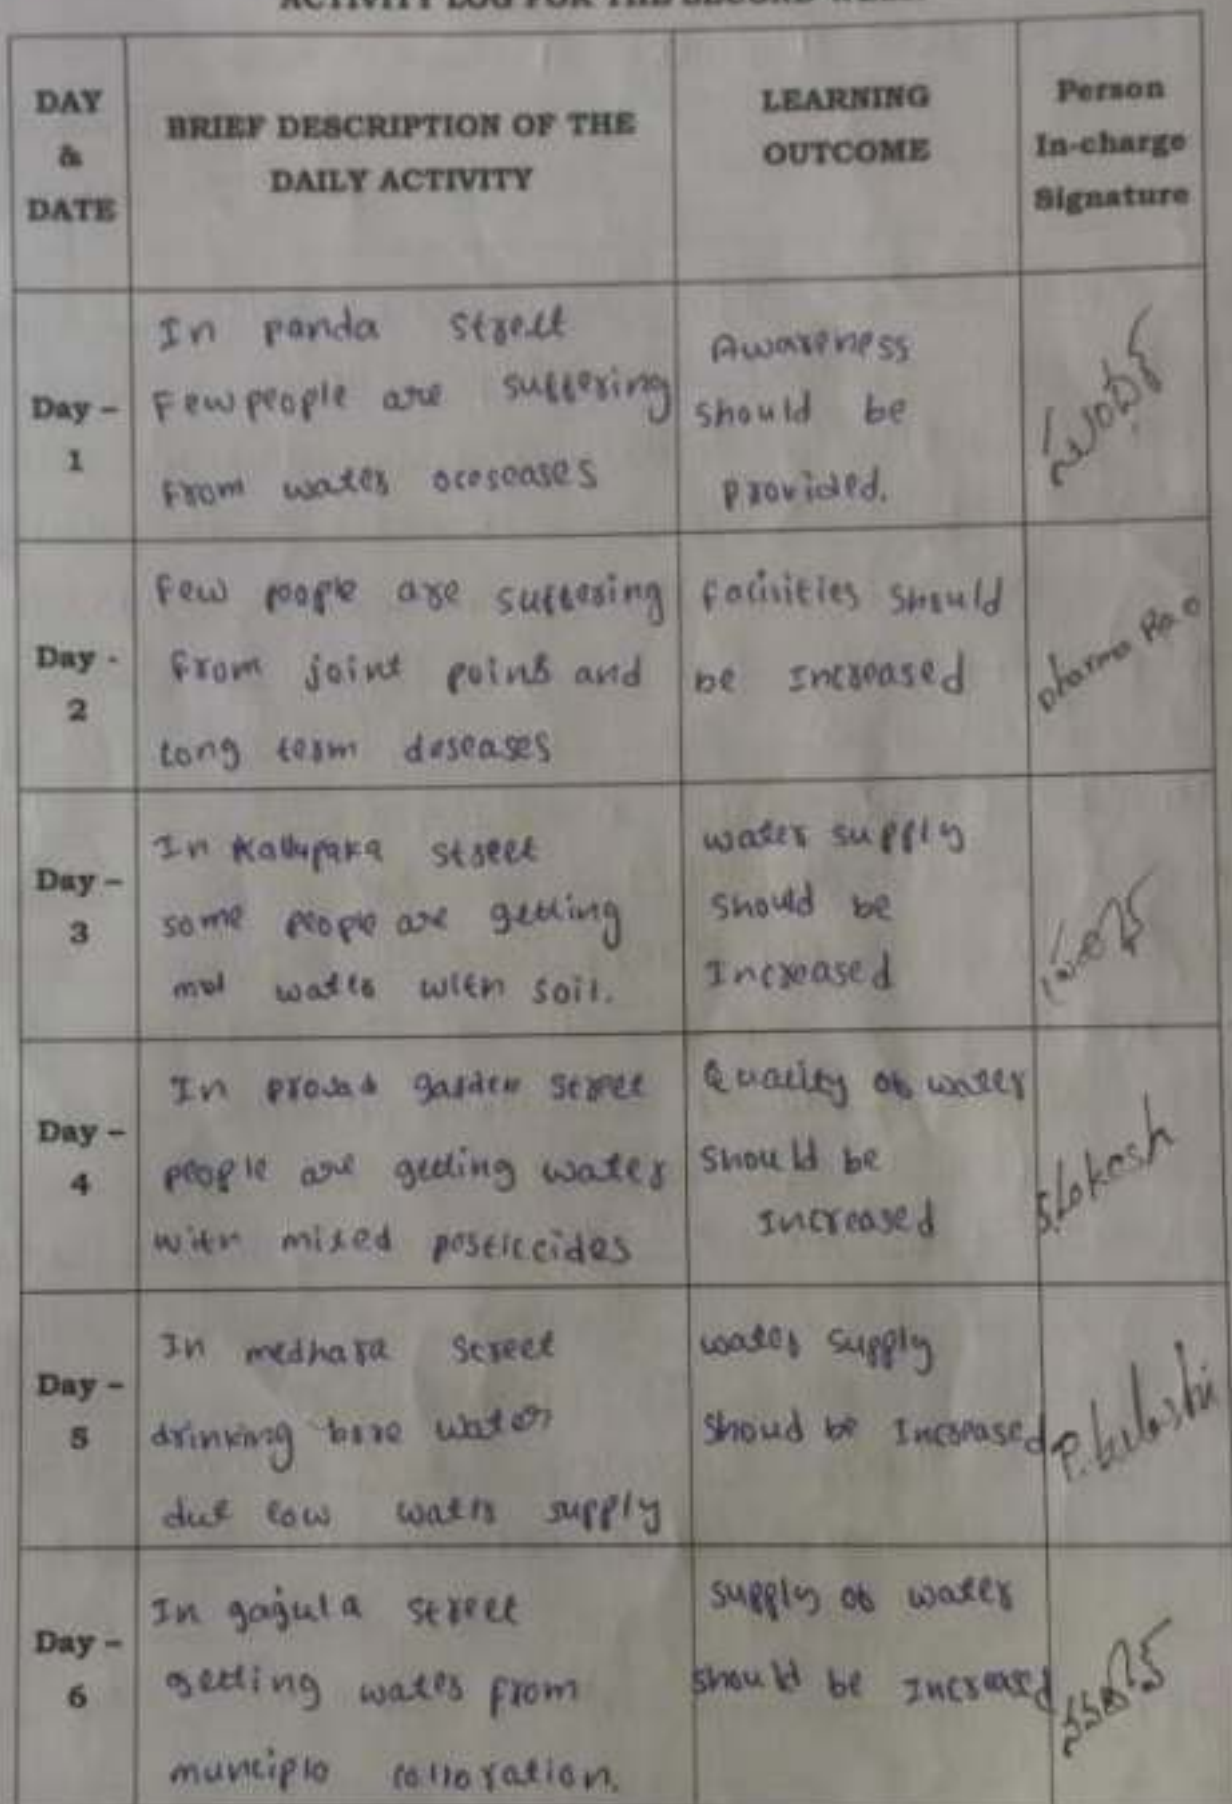 ACTIVITY LOG FOR THE SECOND WEEK
DAY & DATE
BRIEF DESCRIPTION OF THE
DAILY ACTIVITY
LEARNING
OUTCOME
Person
In-charge
Signature
Day – 1
In panda street
Few people are suffering
from water
Awareness
should be
provided.
Day - 2
Few people are suffering
from joint poins and
long term deseases
Facilities should
be Increased
Dharma Rao
Day – 3
In Kallupaka street
some people are getting
water with soil.
water supply
should be
Increased
Day – 4
In garden street
people are getting water
with mixed posticcides
Quality of water
should be
Increased
S.Lokesh
Day – 5
In medhara street
drinking bore water
due low water supply
water supply
shoud be Increased
Day – 6
In gajula street
getting water from
munciplo
supply of water
should be Increased